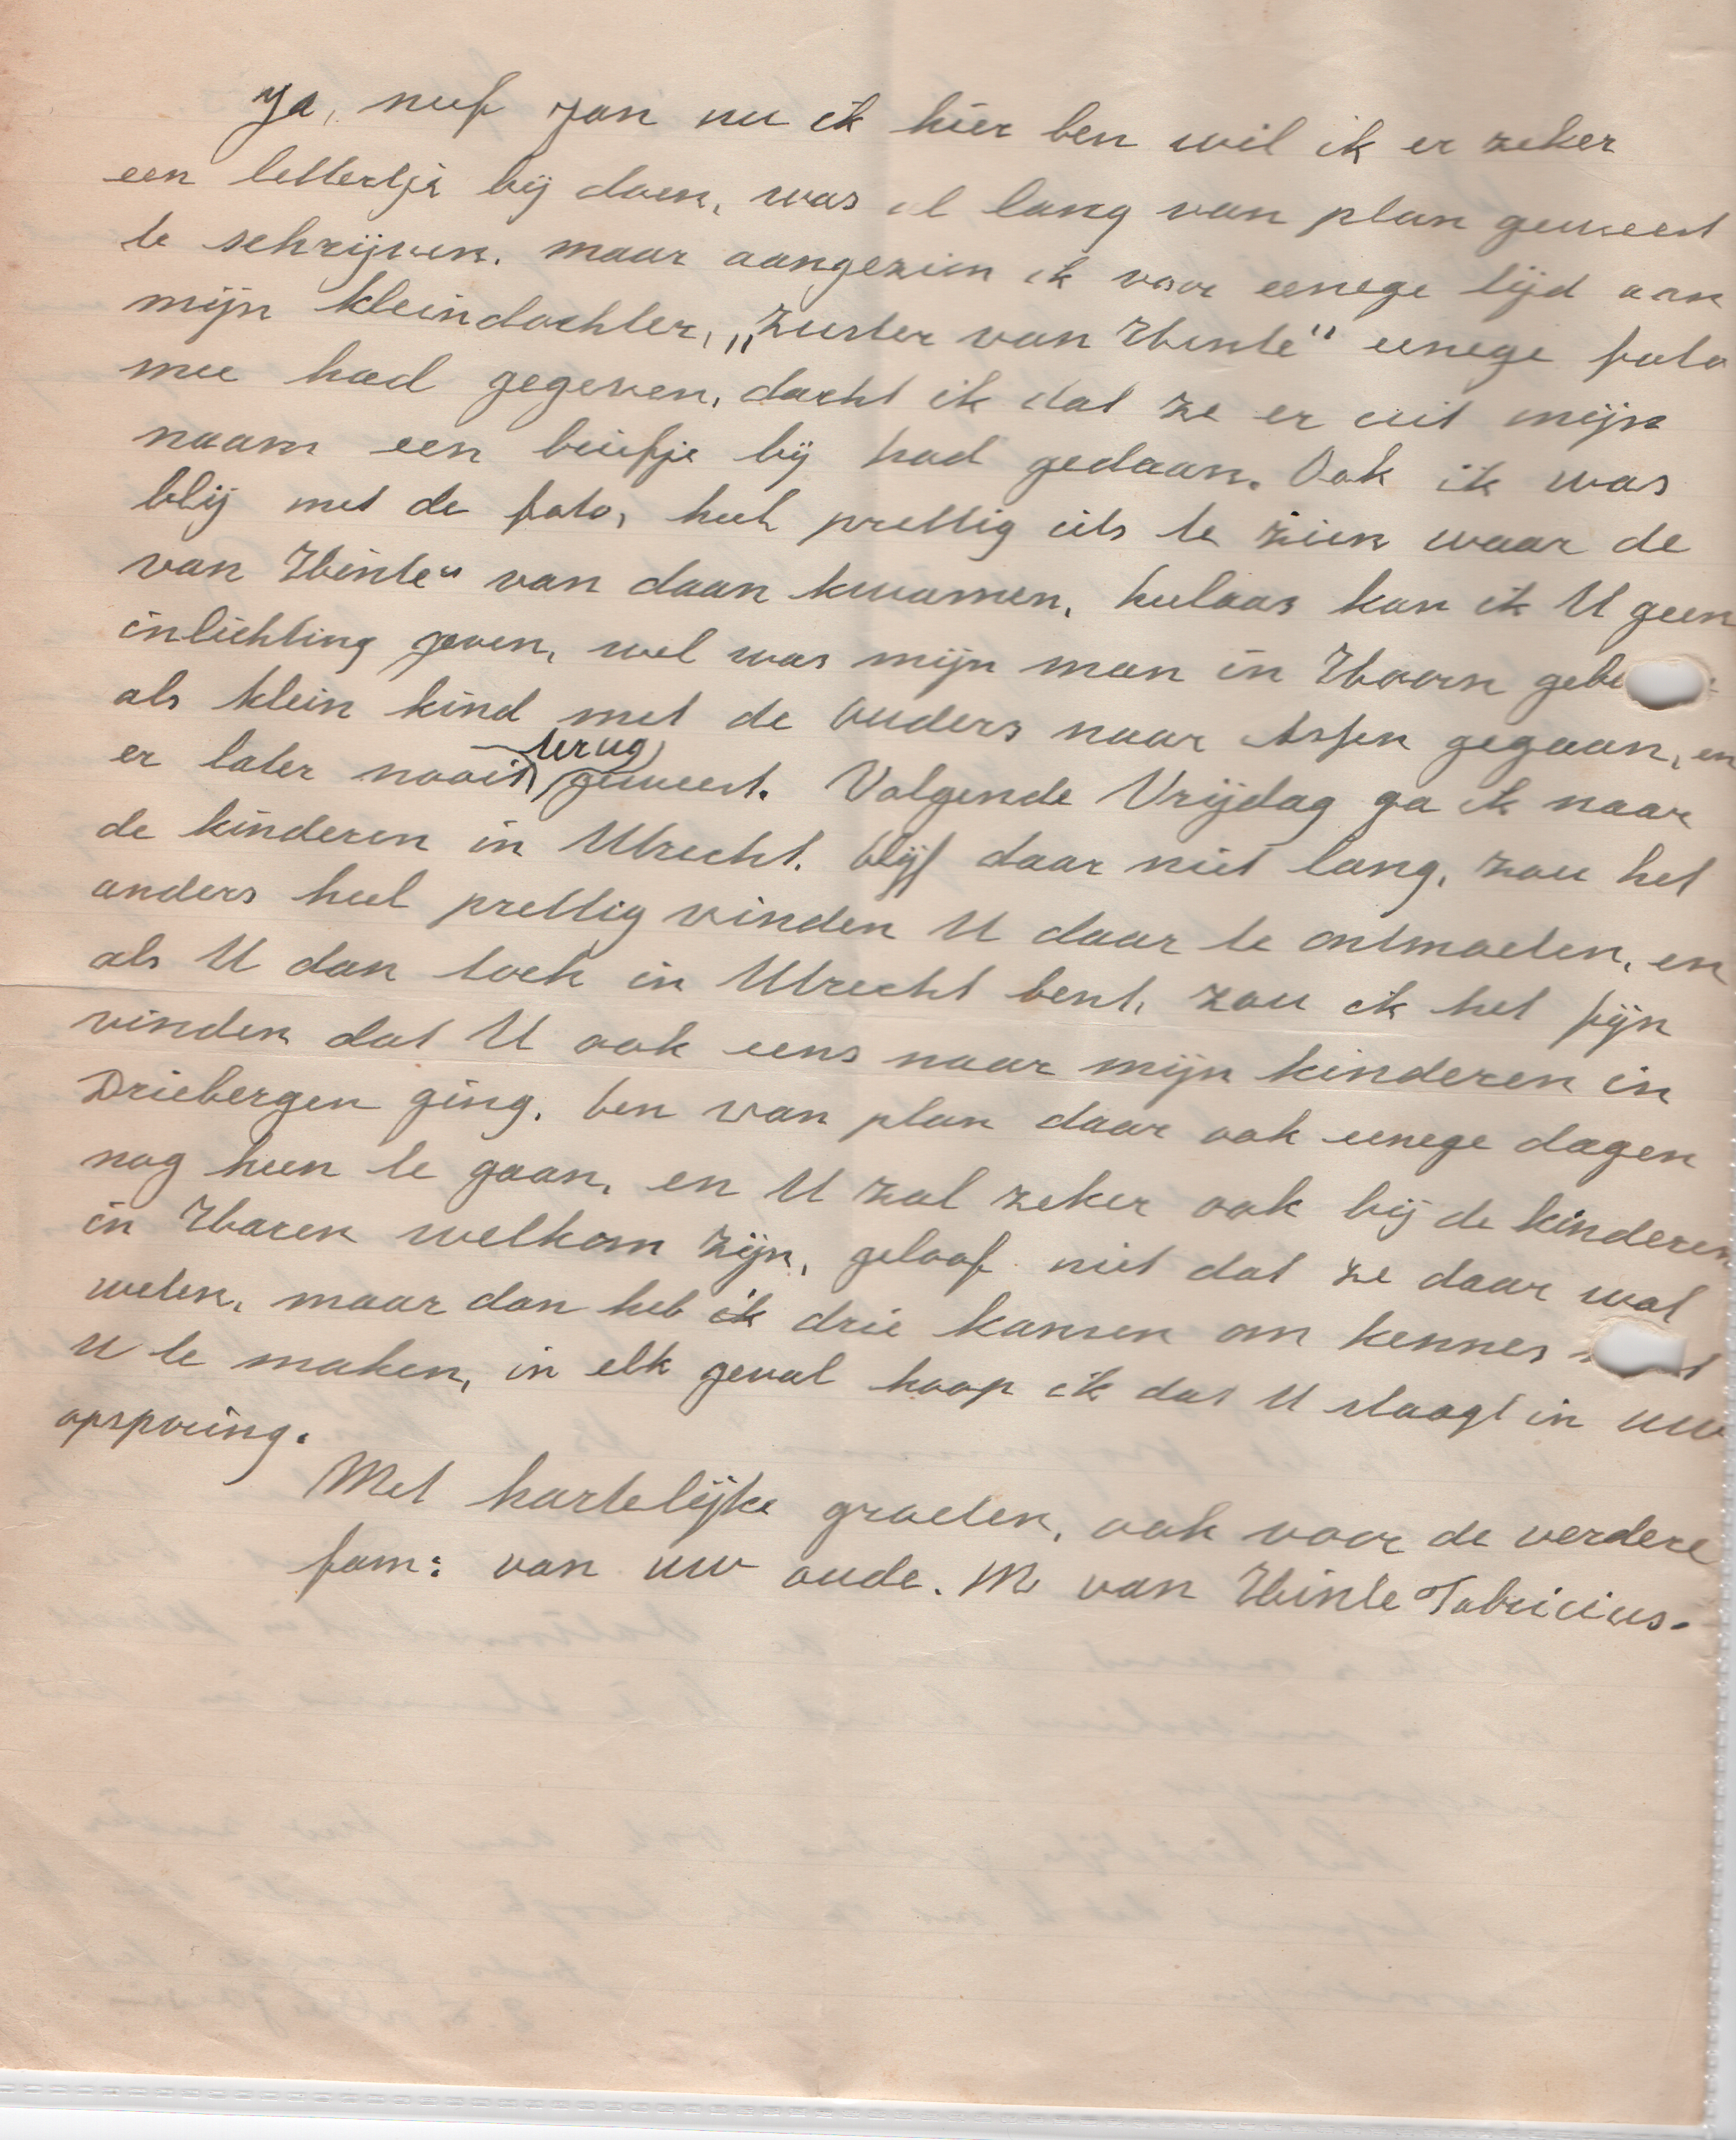 Ja, neef Jan nu ik hier ben wil ik er zeker
een lettertje bij doen, was al lang van plan geweest
te schrijven. maar aangezien ik voor eenege tijd aan
mijn kleindochter, „Zuster van Hinte" eenege foto
mee had gegeven, dacht ik dat ze er uit mijn
naam een briefje bij had gedaan. Ook ik was
blij met de foto, heel prettig iets te zien waar de
van Hinte" van daan kwamen, helaas kan ik U geen
inlichting geven, wel was mijn man in Hoorn
als klein kind met de ouders naar Assen gegaan, en
er later nooit terug geweest. Volgende Vrijdag ga ik naar
de kinderen in Utrecht. blijf daar niet lang, zou het
anders heel prettig vinden U daar te ontmoeten, en
als U dan toch in Utrecht bent, zou ik het fijn
vinden dat U ook eens naar mijn kinderen in
Driebergen ging. ben van plan daar ook eenege dagen
nog heen te gaan, en U zal zeker ook bij de kinderen
in Haren welkom zijn, geloof niet dat ze daar wat
weten, maar dan heb ik drie kansen om kennes
U te maken, in elk geval hoop ik dat U slaagt in uw
opsporing.
Met hartelijke groeten, ook voor de verdere
fam: van uw oude. M van Hinte Fabricius.